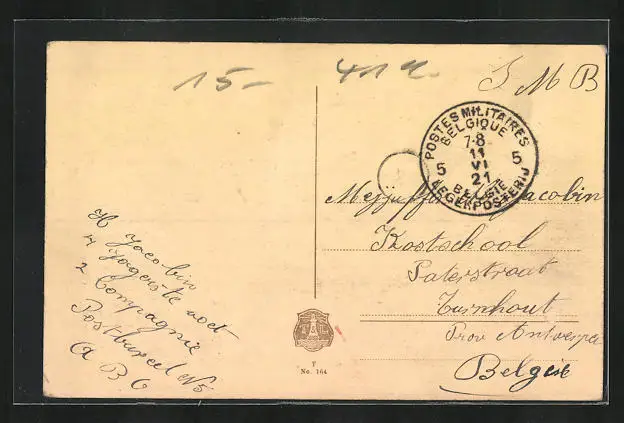 15-
S M B
POSTES MILITAIRES
BELGIQUE
7-8
11
VI
21
5 5
BELGIË
LEGERPOSTERIJ
Jacobin
Kostschool
Paterstraat
Turnhout
Prov Antwerpen
België
H Jacobin
4 Jagers te voet
2 Compagnie
Postbureel N5
A B C
T
No. 164